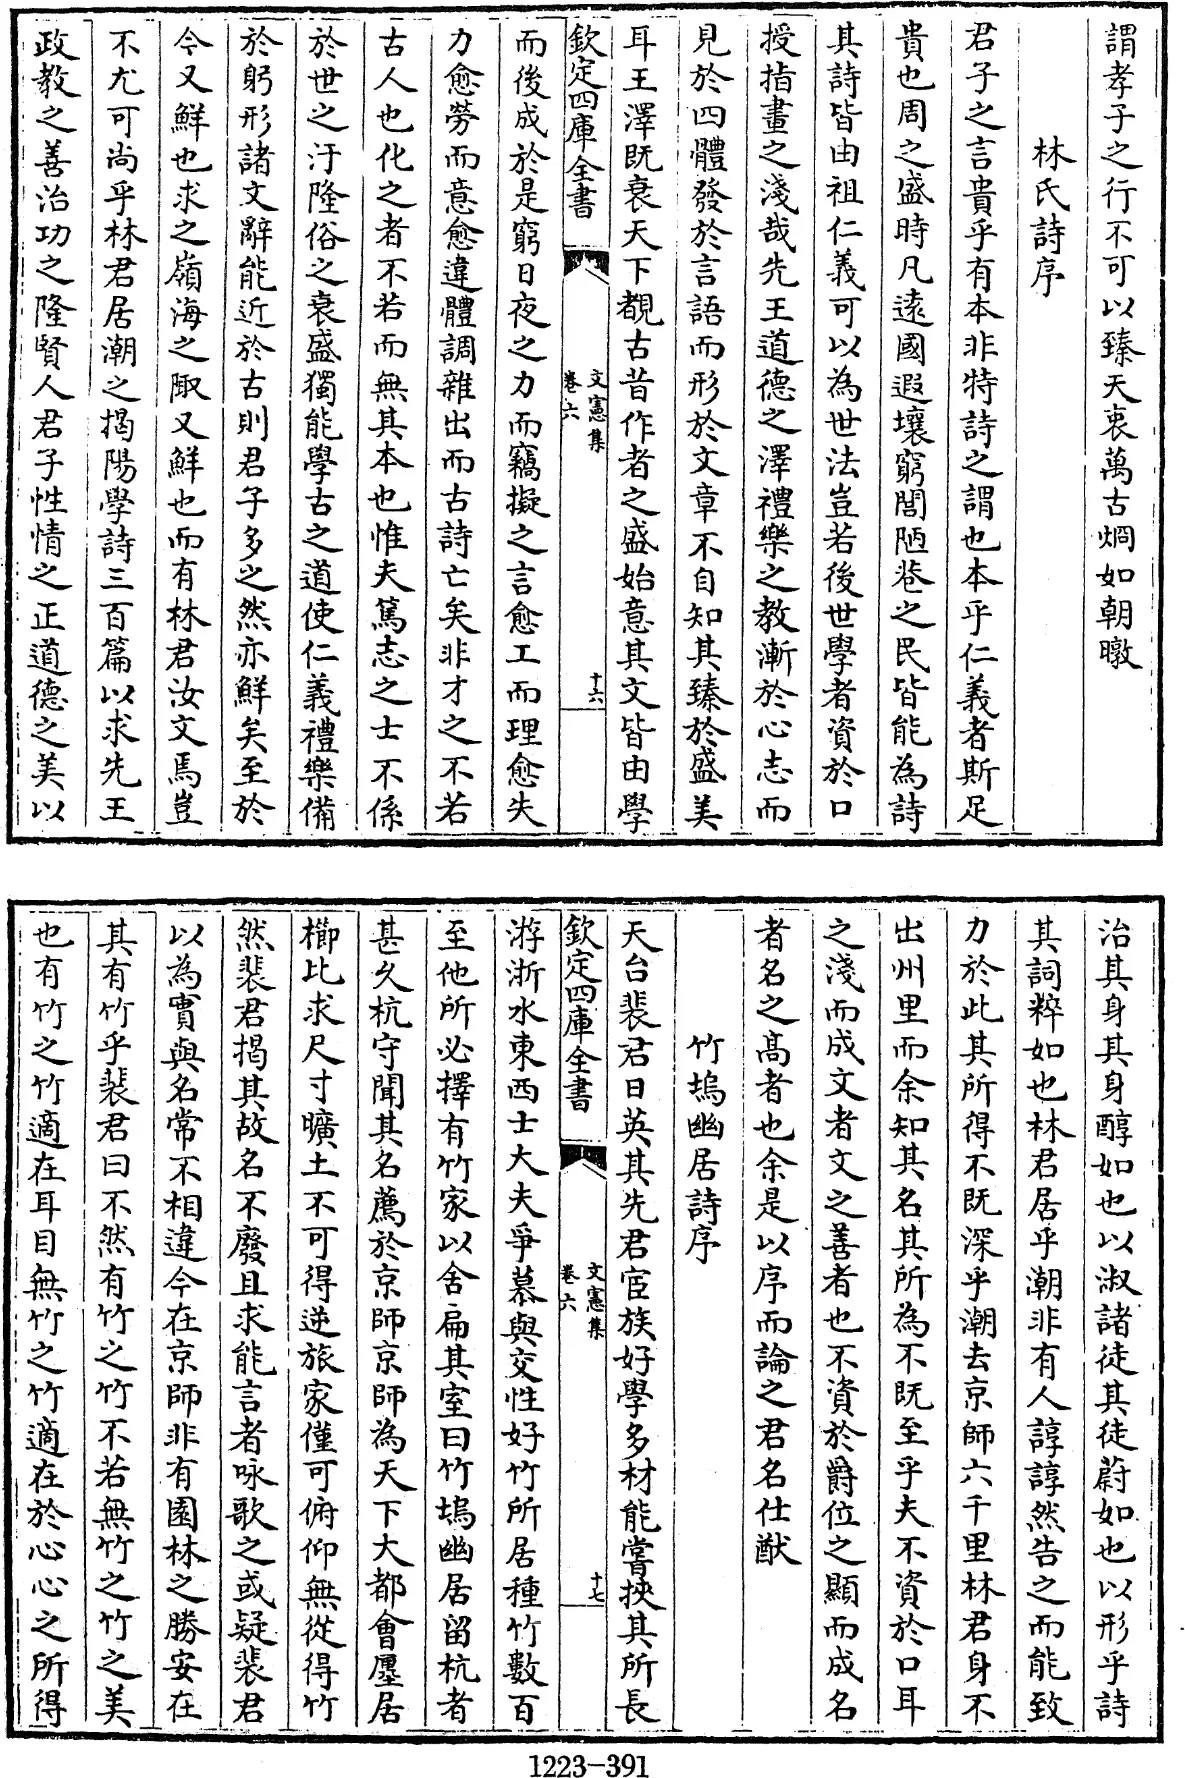 謂孝子之行不可以臻天衷萬古烱如朝暾
林氏詩序
君子之言貴乎有本非特詩之謂也本乎仁義者斯足
貴也周之盛時凡逺國遐壤窮閭陋巷之民皆能為詩
其詩皆由祖仁義可以為世法豈若後世學者資於口
授指畫之淺哉先王道德之澤禮樂之教漸於心志而
見於四體發於言語而形於文章不自知其臻於盛美
耳王澤既衰天下覩古昔作者之盛始意其文皆由學
欽定四庫全書
文憲集
卷六
十六
而後成於是窮日夜之力而竊擬之言愈工而理愈失
力愈勞而意愈違體調雜出而古詩亡矣非才之不若
古人也化之者不若而無其本也惟夫篤志之士不係
於世之汙隆俗之衰盛獨能學古之道使仁義禮樂備
於躬形諸文辭能近於古則君子多之然亦鮮矣至於
今又鮮也求之嶺海之陬又鮮也而有林君汝文焉豈
不尤可尚乎林君居潮之揭陽學詩三百篇以求先王
政教之善治功之隆賢人君子性情之正道德之美以
治其身其身醇如也以淑諸徒其徒蔚如也以形乎詩
其詞粹如也林君居乎潮非有人諄諄然告之而能致
力於此其所得不既深乎潮去京師六千里林君身不
出州里而余知其名其所為不既至乎夫不資於口耳
之淺而成文者文之善者也不資於爵位之顯而成名
者名之高者也余是以序而論之君名仕猷
竹塢幽居詩序
天台裴君日英其先君宦族好學多材能嘗挾其所長
欽定四庫全書
文憲集
卷六
十七
游浙水東西士大夫爭慕與交性好竹所居種竹數百
至他所必擇有竹家以舍扁其室曰竹塢幽居留杭者
甚久杭守聞其名薦於京師京師為天下大都會廛居
櫛比求尺寸曠土不可得逆旅家僅可俯仰無從得竹
然裴君揭其故名不廢且求能言者咏歌之或疑裴君
以為實與名常不相違今在京師非有園林之勝安在
其有竹乎裴君曰不然有竹之竹不若無竹之竹之美
也有竹之竹適在耳目無竹之竹適在於心心之所得
1223-391